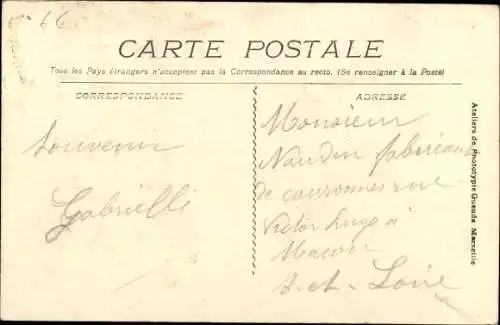 66
CARTE POSTALE
Tous les Pays étrangers n'acceptent pas la Correspondance au recto. (Se renseigner à la Poste)
CORRESPONDANCE
ADRESSE
Souvenir
Gabrielle
Monsieur
Naudin fabricant
de couronnes rue
Victor Hugo à
Macon
S-et-Loire
Ateliers de Phototypie Guende Marseille